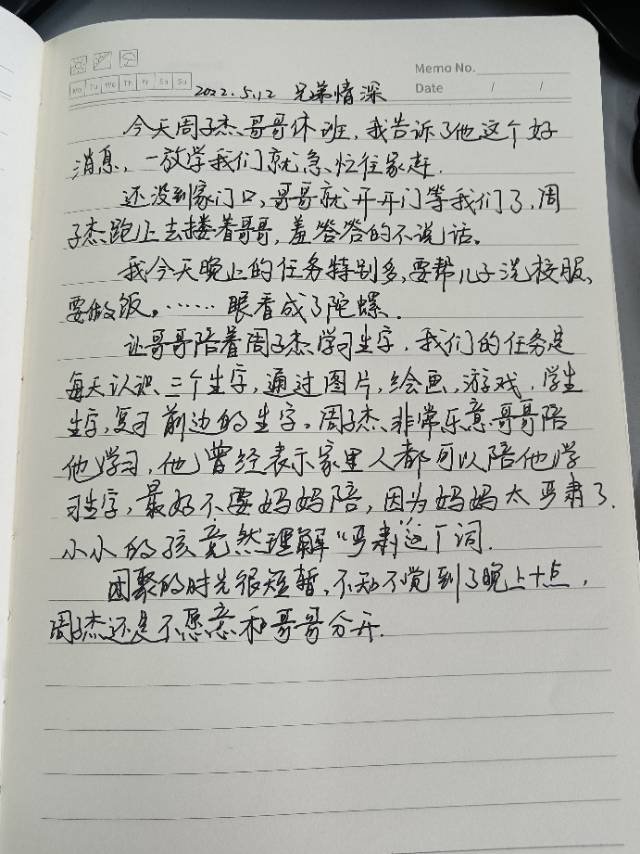 Mo Tu We Th Fr Sa Su
Memo No.
Date / /
2022.5.12 兄弟情深
今天周子杰哥哥休班，我告诉了他这个好
消息，一放学我们就急忙往家赶.
还没到家门口，哥哥就开开门等我们了，周
子杰跑上去搂着哥哥，羞答答的不说话。
我今天晚上的任务特别多，要帮儿子洗校服，
要做饭。……眼看成了陀螺.
让哥哥陪着周子杰学习生字，我们的任务是
每天认识三个生字，通过图片，绘画，游戏，学生
生字，复习前边的生字。周子杰非常乐意哥哥陪
他学习，他曾经表示家里人都可以陪他学
习生字，最好不要妈妈陪，因为妈妈太严肃了.
小小的孩竟然理解“严肃”这个词.
团聚的时光很短暂，不知不觉到了晚上十点，
周子杰还是不愿意和哥哥分开.